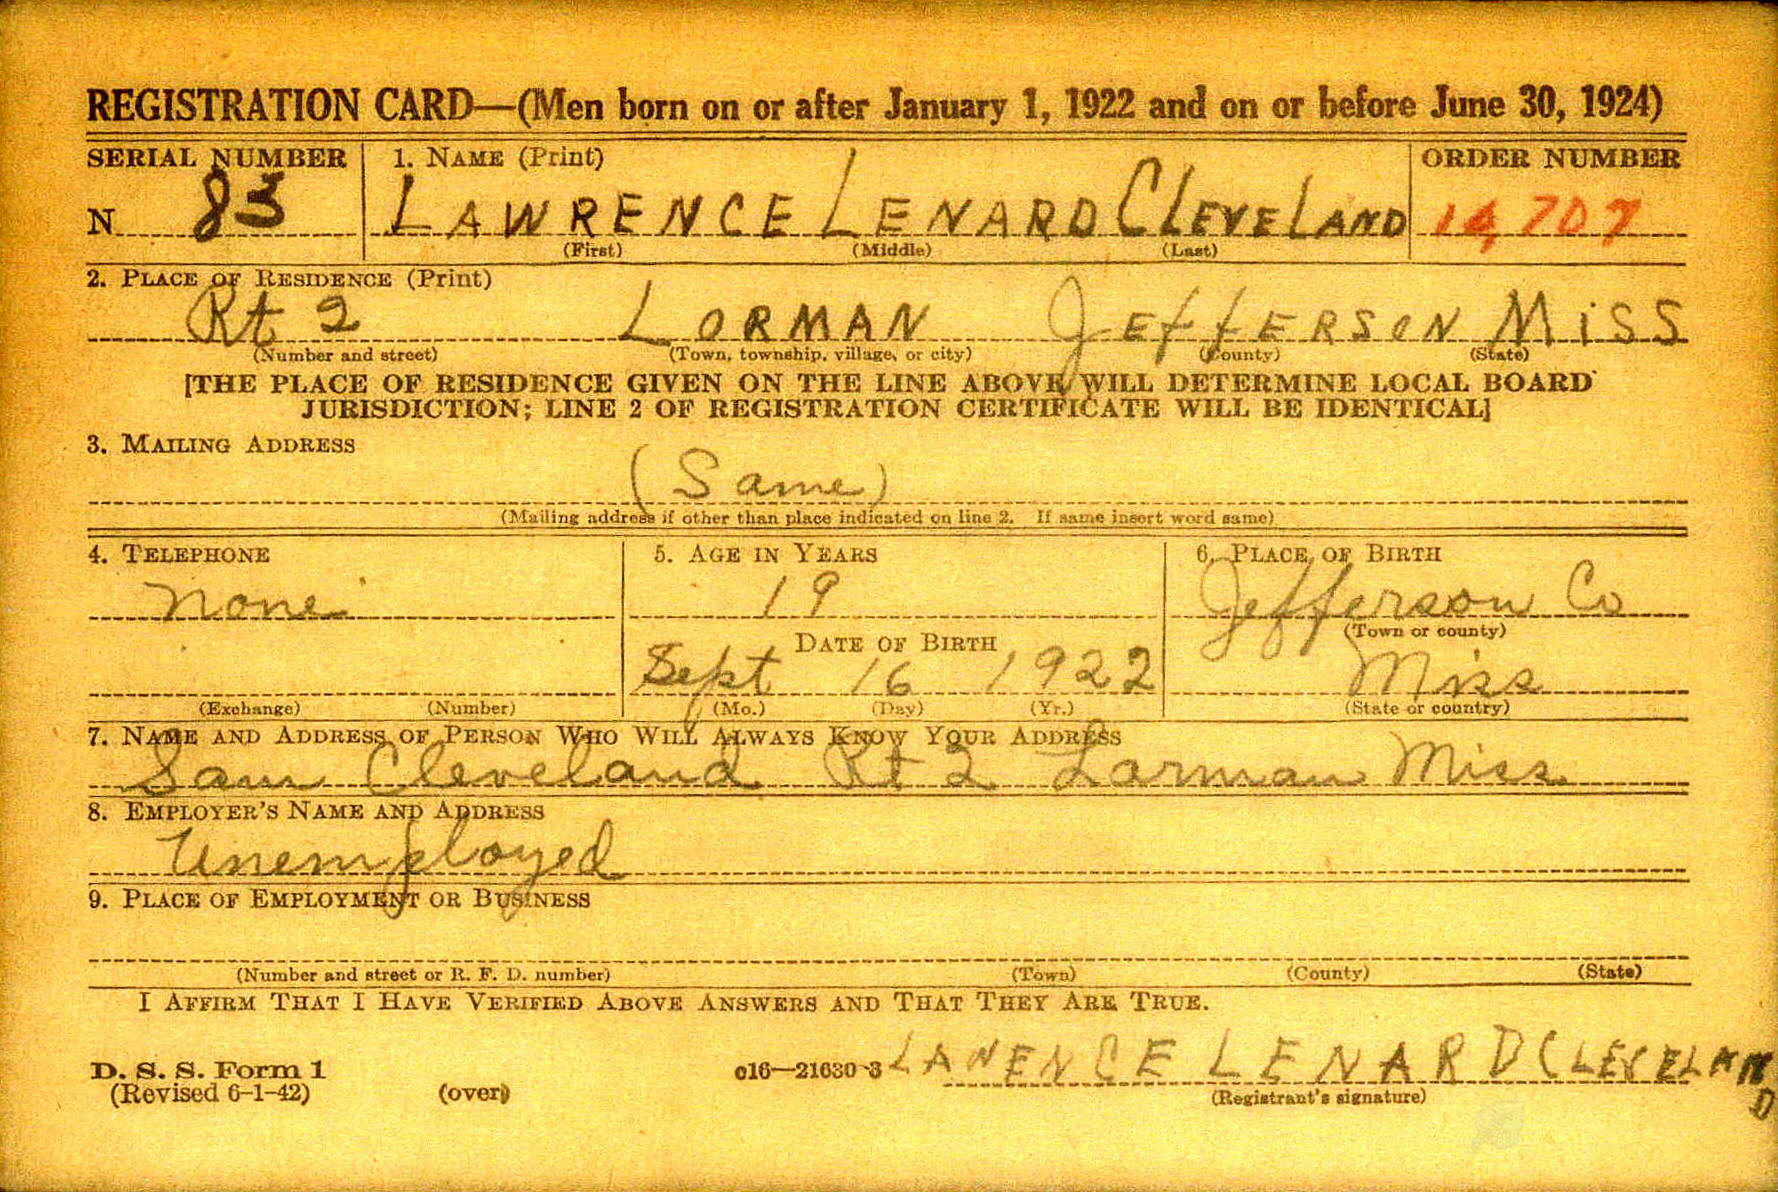 REGISTRATION CARD—(Men born on or after January 1, 1922 and on or before June 30, 1924)
SERIAL NUMBER 1. NAME (Print) ORDER NUMBER
N 83 LAWRENCE LENARD CLEVELAND 14,707
(First) (Middle) (Last)
2. PLACE OF RESIDENCE (Print)
Rt 2 LORMAN JEffERSON MiSS
(Number and street) (Town, township, village, or city) (County) (State)
[THE PLACE OF RESIDENCE GIVEN ON THE LINE ABOVE WILL DETERMINE LOCAL BOARD
JURISDICTION; LINE 2 OF REGISTRATION CERTIFICATE WILL BE IDENTICAL]
3. MAILING ADDRESS
(Same)
(Mailing address if other than place indicated on line 2. If same insert word same)
4. TELEPHONE 5. AGE IN YEARS 6. PLACE OF BIRTH
none 19 Jefferson Co
DATE OF BIRTH (Town or county)
Sept 16 1922 Miss
(Exchange) (Number) (Mo.) (Day) (Yr.) (State or country)
7. NAME AND ADDRESS OF PERSON WHO WILL ALWAYS KNOW YOUR ADDRESS
Sam Cleveland Rt 2 Lorman Miss
8. EMPLOYER'S NAME AND ADDRESS
Unemployed
9. PLACE OF EMPLOYMENT OR BUSINESS
(Number and street or R. F. D. number) (Town) (County) (State)
I AFFIRM THAT I HAVE VERIFIED ABOVE ANSWERS AND THAT THEY ARE TRUE.
D. S. S. Form 1 c16—21630-3 LAWENCE LENARD CLEVELAND
(Revised 6-1-42) (over) (Registrant's signature)